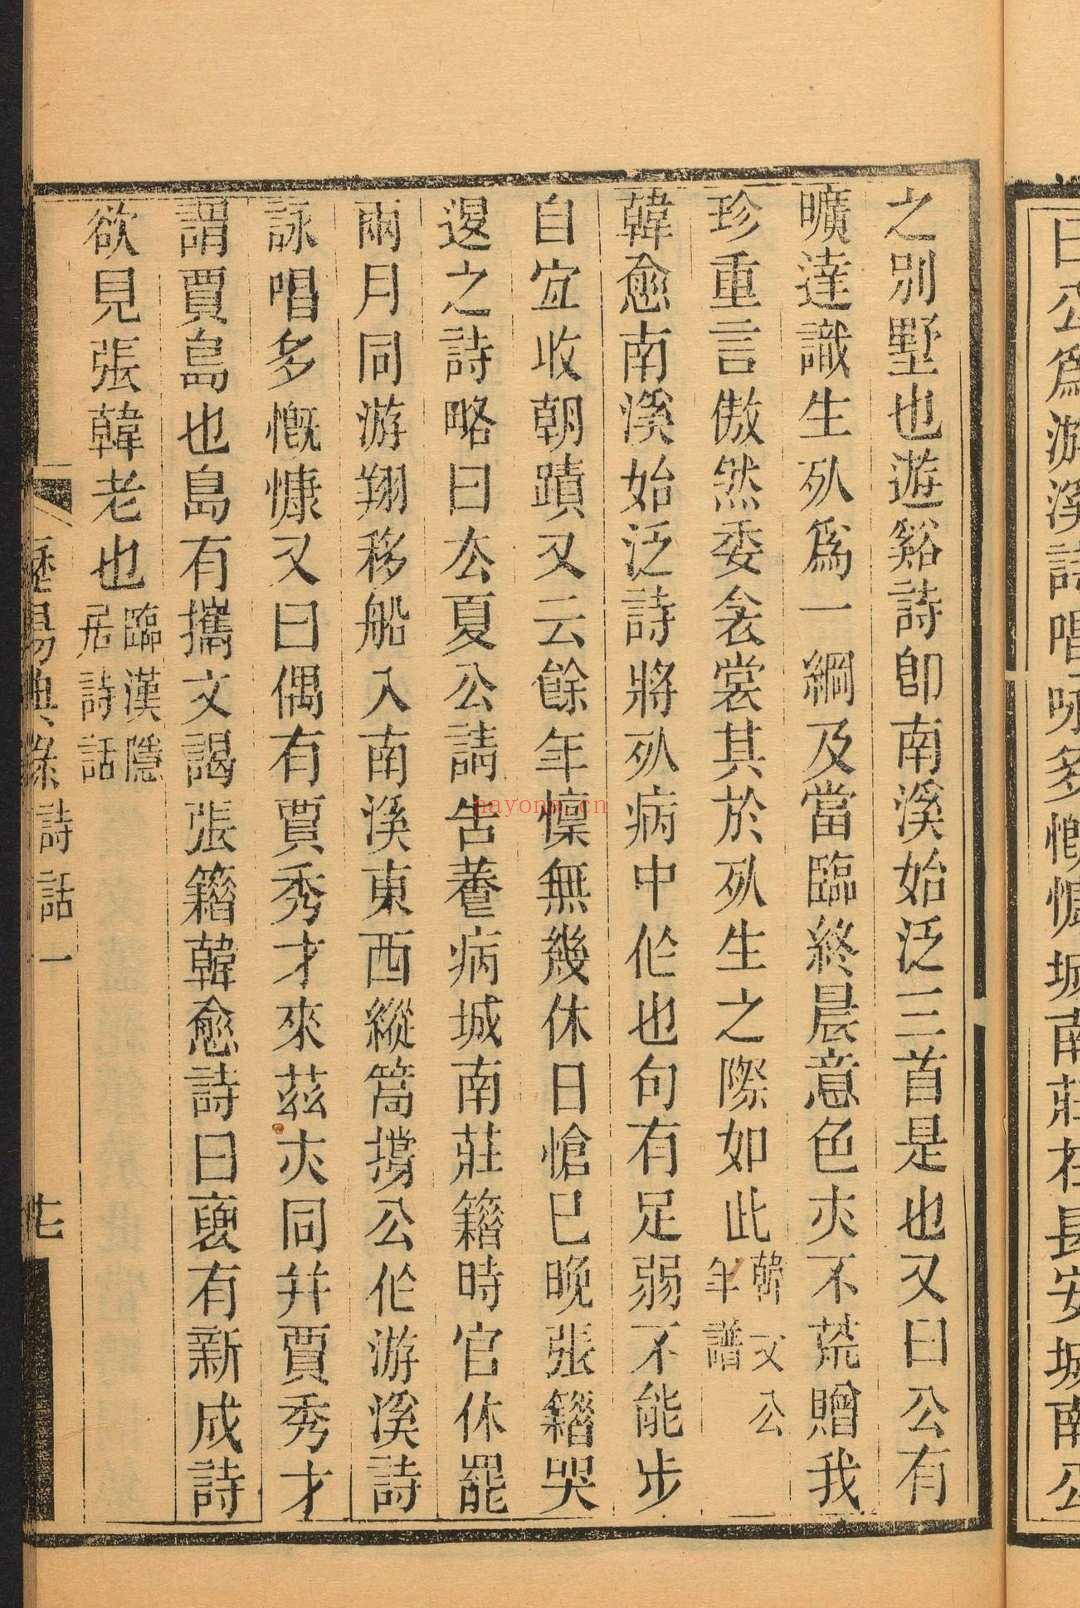 曰公爲游溪詩唱咏多慨慷城南莊在長安城南公
之别墅也遊谿詩卽南溪始泛三首是也又曰公有
曠達識生死爲一綱及當臨終晨意色亦不荒贈我
珍重言傲然委衾裳其於死生之際如此韓文公年譜
韓愈南溪始泛詩將死病中作也句有足弱不能步
自宜收朝蹟又云餘年懍無幾休日愴已晚張籍哭
退之詩略曰去夏公請告養病城南莊籍時官休罷
兩月同游翔移船入南溪東西縱篙撐公作游溪詩
詠唱多慨慷又曰偶有賈秀才來茲亦同并賈秀才
謂賈島也島有攜文謁張籍韓愈詩曰袖有新成詩
欲見張韓老也臨漢隱居詩話
歷陽典錄 詩話一 十七
nayona.cn